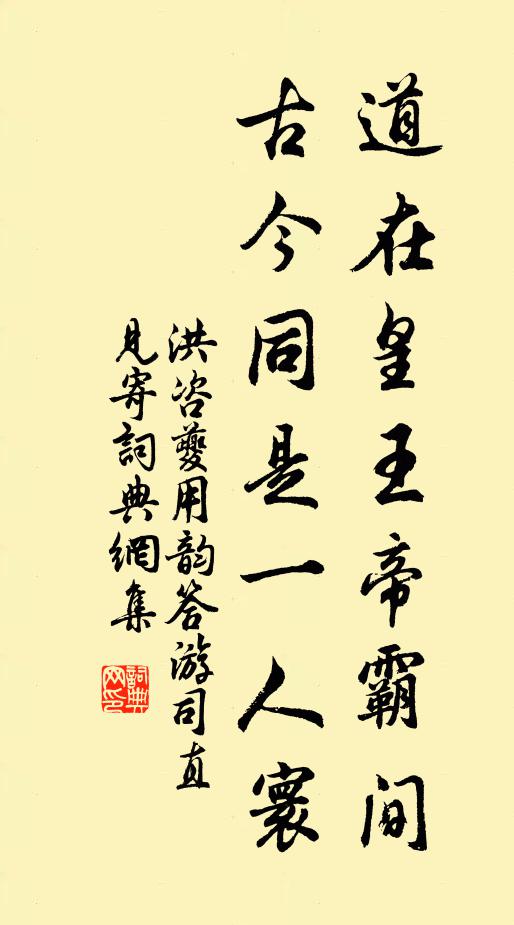 道在皇王帝霸間
古今同是一人寰
洪咨夔用韵答游司直
見寄詞典網集
詞典網印